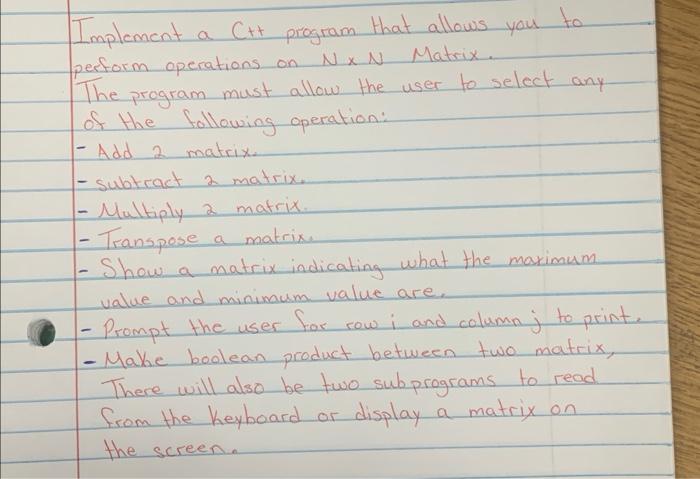 Implement a C++ program that allows you to
perform operations on N x N Matrix.
The program must allow the user to select any
of the following operation:
- Add 2 matrix.
- subtract 2 matrix.
- Multiply 2 matrix.
- Transpose a matrix.
- Show a matrix indicating what the maximum
value and minimum value are.
- Prompt the user for row i and column j to print.
- Make boolean product between two matrix,
There will also be two subprograms to read
from the keyboard or display a matrix on
the screen.